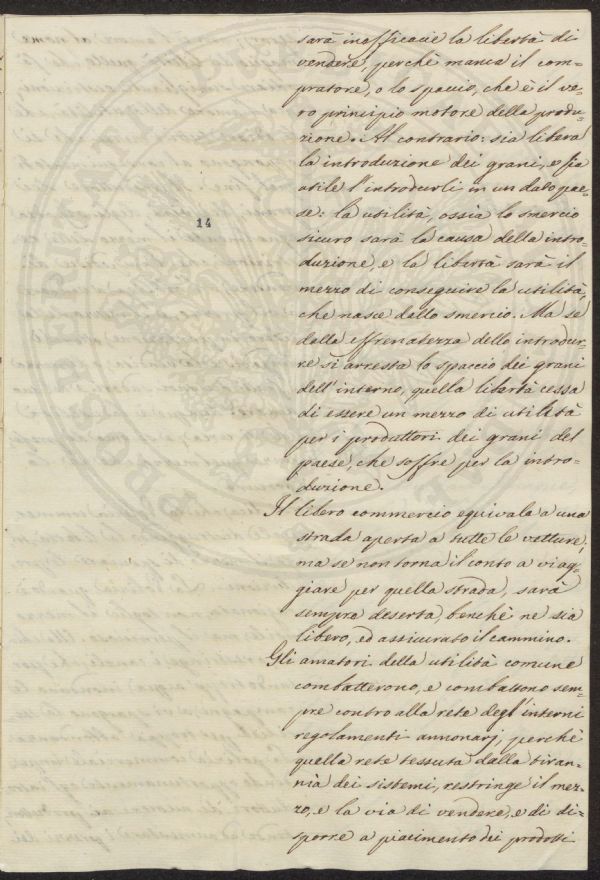 sarà inofficacie la libertà di
vendere, perchè manca il com-
pratore, o lo spaccio, che è il ve-
ro principio motore della produ-
zione. Al contrario: sia libera
la introduzione dei grani, e sia
utile l'introdurli in un dato pae-
se: la utilità, ossia lo smercio
14
sicuro sarà la causa della intro-
duzione, e la libertà sarà il
mezzo di conseguire la utilità,
che nasce dallo smercio. Ma se
dalla effrenatezza dello introdur-
re si arresta lo spaccio dei grani
dell'interno, quella libertà cessa
di essere un mezzo di utilità
per i produttori dei grani del
paese, che soffre per la intro-
duzione.
Il libero commercio equivale a una
strada aperta a tutte le vetture,
ma se non torna il conto a viag-
giare per quella strada, sarà
sempre deserta, benchè ne sia
libero, ed assicurato il cammino.
Gli amatori della utilità comune
combatterono, e combattono sem-
pre contro alla rete degl'interni
regolamenti annonarj, perchè
quella rete tessuta dalla tiran-
nia dei sistemi, restringe il mez-
zo, e la via di vendere, e di di-
sporre a piacimento dei prodotti